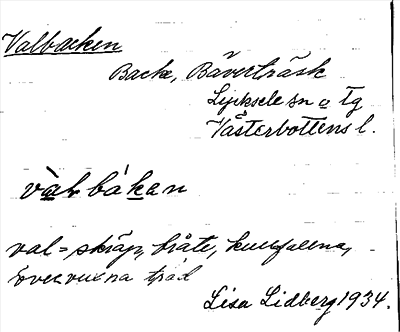 Valbacken
Backe, Bäverträsk
Lycksele sn o tg
Västerbottens l.
vàlbákan
val = skräp, bråte, kullfallna,
övervuxna träd
Lisa Lidberg 1934.